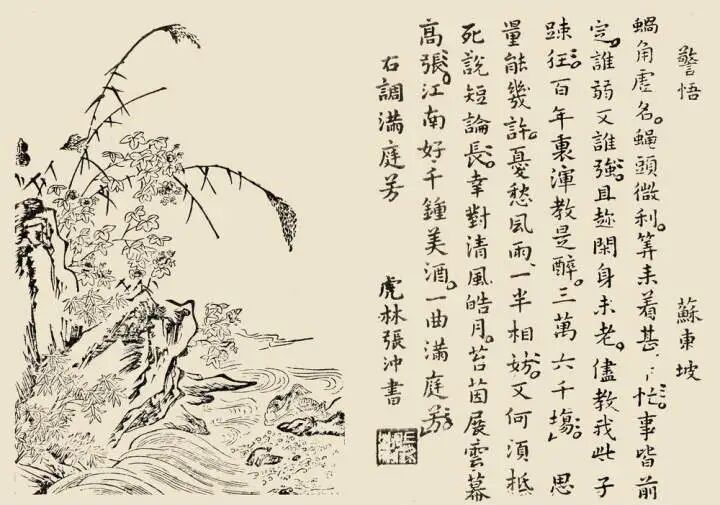 警悟 蘇東坡
蝸角虛名。蠅頭微利。筭来着甚〻忙。事皆前
定。誰弱又誰強。且趂閑身未老。儘教我些子
踈狂。百年裏渾教是醉。三萬六千塲。思
量能幾許。憂愁風雨、一半相妨。又何湏抵
死說短論長。幸對清風皓月。苔茵展雲幕
高張。江南好千鍾美酒。一曲滿庭芳。
右調滿庭芳 虎林張沖書